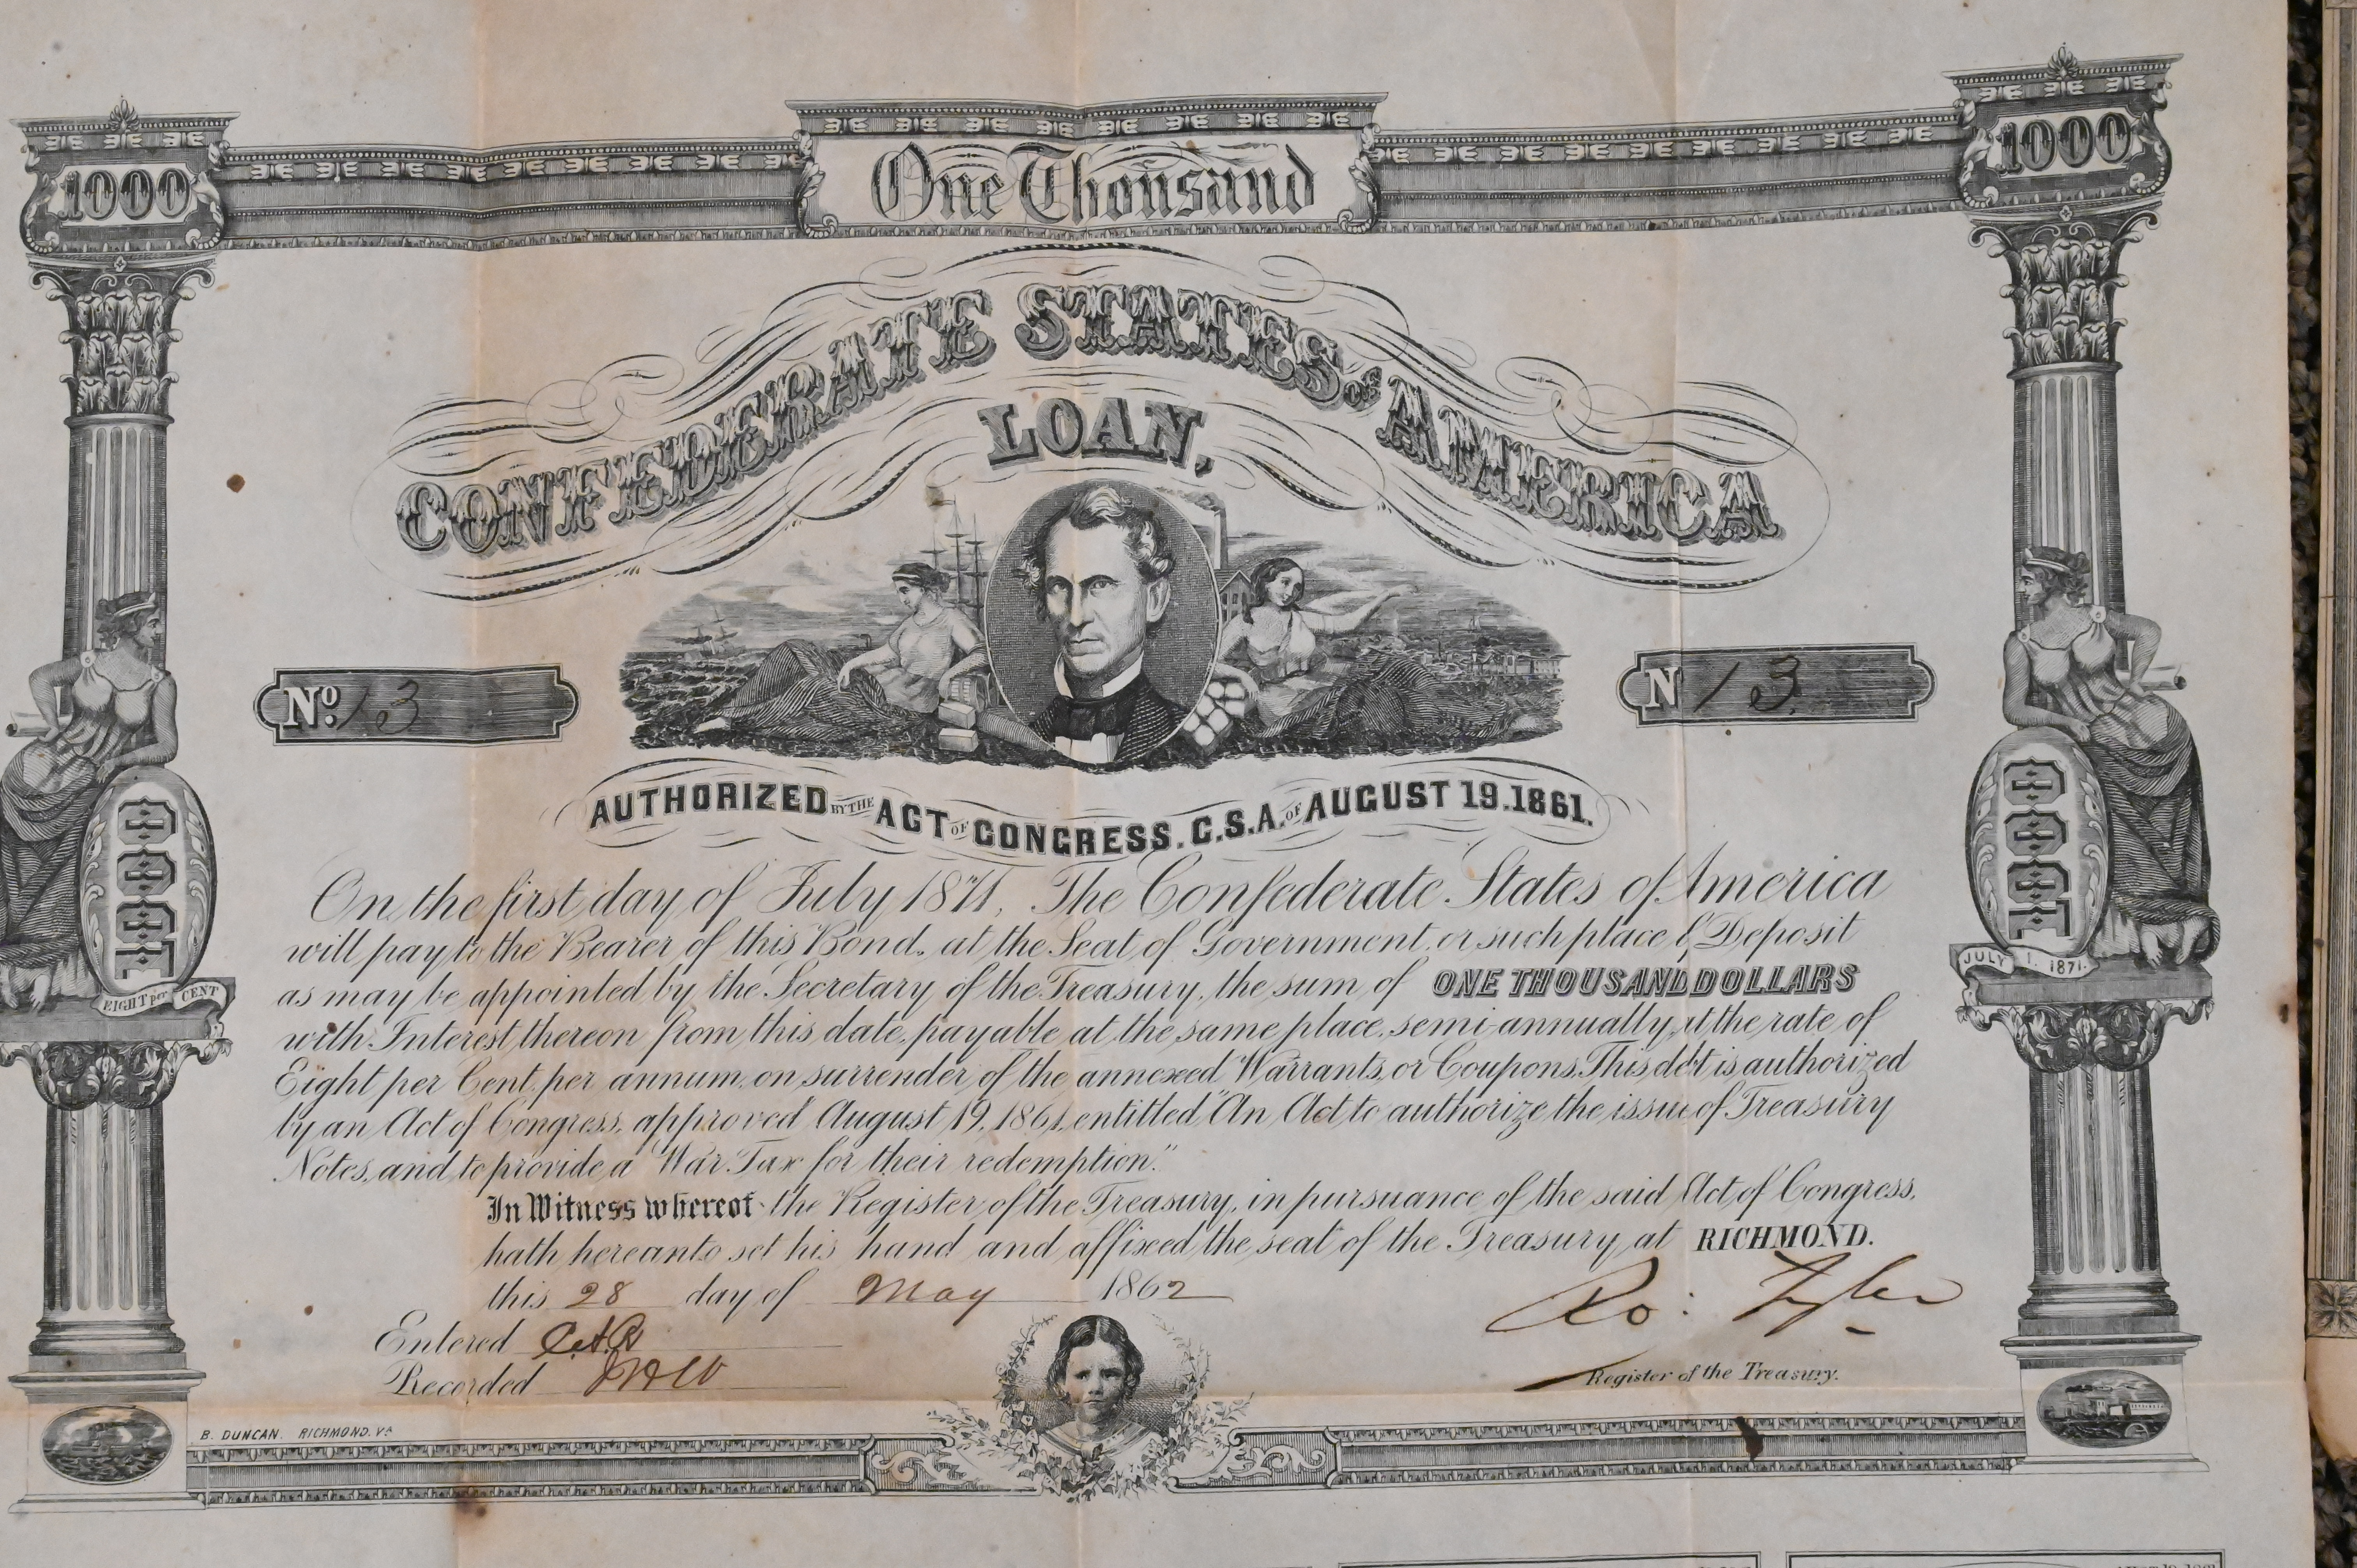 1000
One Thousand
1000
CONFEDERATE STATES OF AMERICA
LOAN,
No. 13
N 13
AUTHORIZED BY THE ACT OF CONGRESS. C.S.A. OF AUGUST 19. 1861.
1000
EIGHT per CENT
1000
JULY 1. 1871.
On the first day of July 1871, The Confederate States of America
will pay to the Bearer of this Bond, at the Seat of Government, or such place of Deposit
as may be appointed by the Secretary of the Treasury, the sum of ONE THOUSAND DOLLARS
with Interest thereon from this date, payable at the same place, semi-annually, at the rate of
Eight per Cent, per annum, on surrender of the annexed Warrants, or Coupons. This debt is authorized
by an Act of Congress, approved August 19, 1861, entitled "An Act to authorize the issue of Treasury
Notes, and to provide a War Tax for their redemption."
In Witness whereof the Register of the Treasury, in pursuance of the said Act of Congress,
hath hereunto set his hand and affixed the seal of the Treasury, at RICHMOND.
this 28 day of May 1862
Ro: Tyler
Entered
Recorded
Register of the Treasury.
B. DUNCAN. RICHMOND, VA